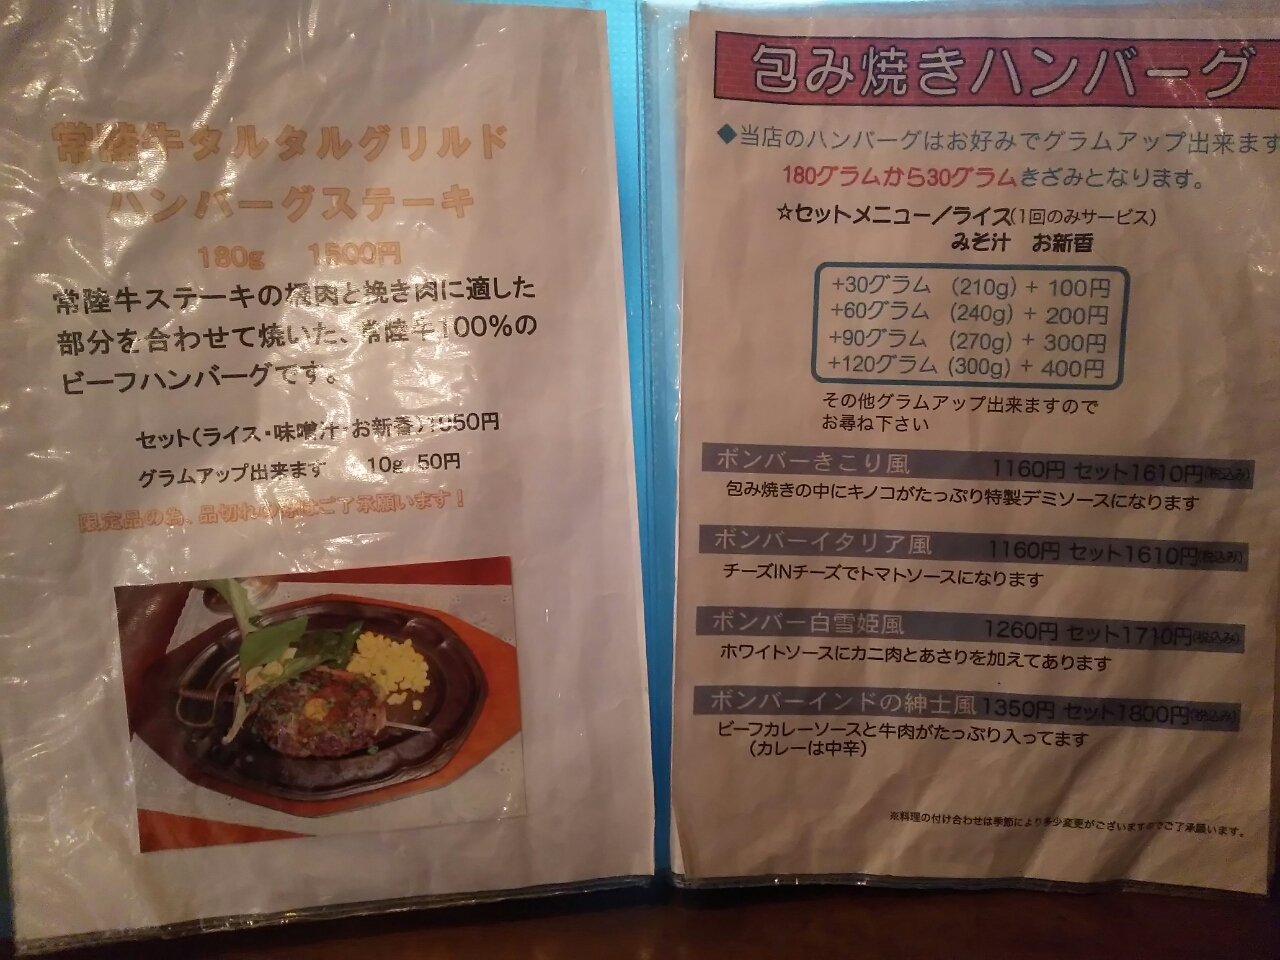 常陸牛タルタルグリルド
ハンバーグステーキ
180g 1500円
常陸牛ステーキの端肉と挽き肉に適した
部分を合わせて焼いた、常陸牛100%の
ビーフハンバーグです。
セット(ライス・味噌汁・お新香)1950円
グラムアップ出来ます 10g 50円
限定品の為、品切れの際はご了承願います!
包み焼きハンバーグ
◆当店のハンバーグはお好みでグラムアップ出来ます
180グラムから30グラムきざみとなります。
☆セットメニュー/ライス(1回のみサービス)
みそ汁 お新香
+30グラム (210g) + 100円
+60グラム (240g) + 200円
+90グラム (270g) + 300円
+120グラム (300g) + 400円
その他グラムアップ出来ますので
お尋ね下さい
ボンバーきこり風 1160円 セット1610円(税込み)
包み焼きの中にキノコがたっぷり特製デミソースになります
ボンバーイタリア風 1160円 セット1610円(税込み)
チーズINチーズでトマトソースになります
ボンバー白雪姫風 1260円 セット1710円(税込み)
ホワイトソースにカニ肉とあさりを加えてあります
ボンバーインドの紳士風 1350円 セット1800円(税込み)
ビーフカレーソースと牛肉がたっぷり入ってます
(カレーは中辛)
※料理の付け合わせは季節により多少変更がございますのでご了承願います。